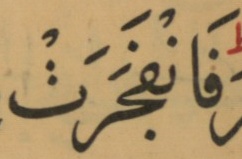 فَانْفَجَرَتْ